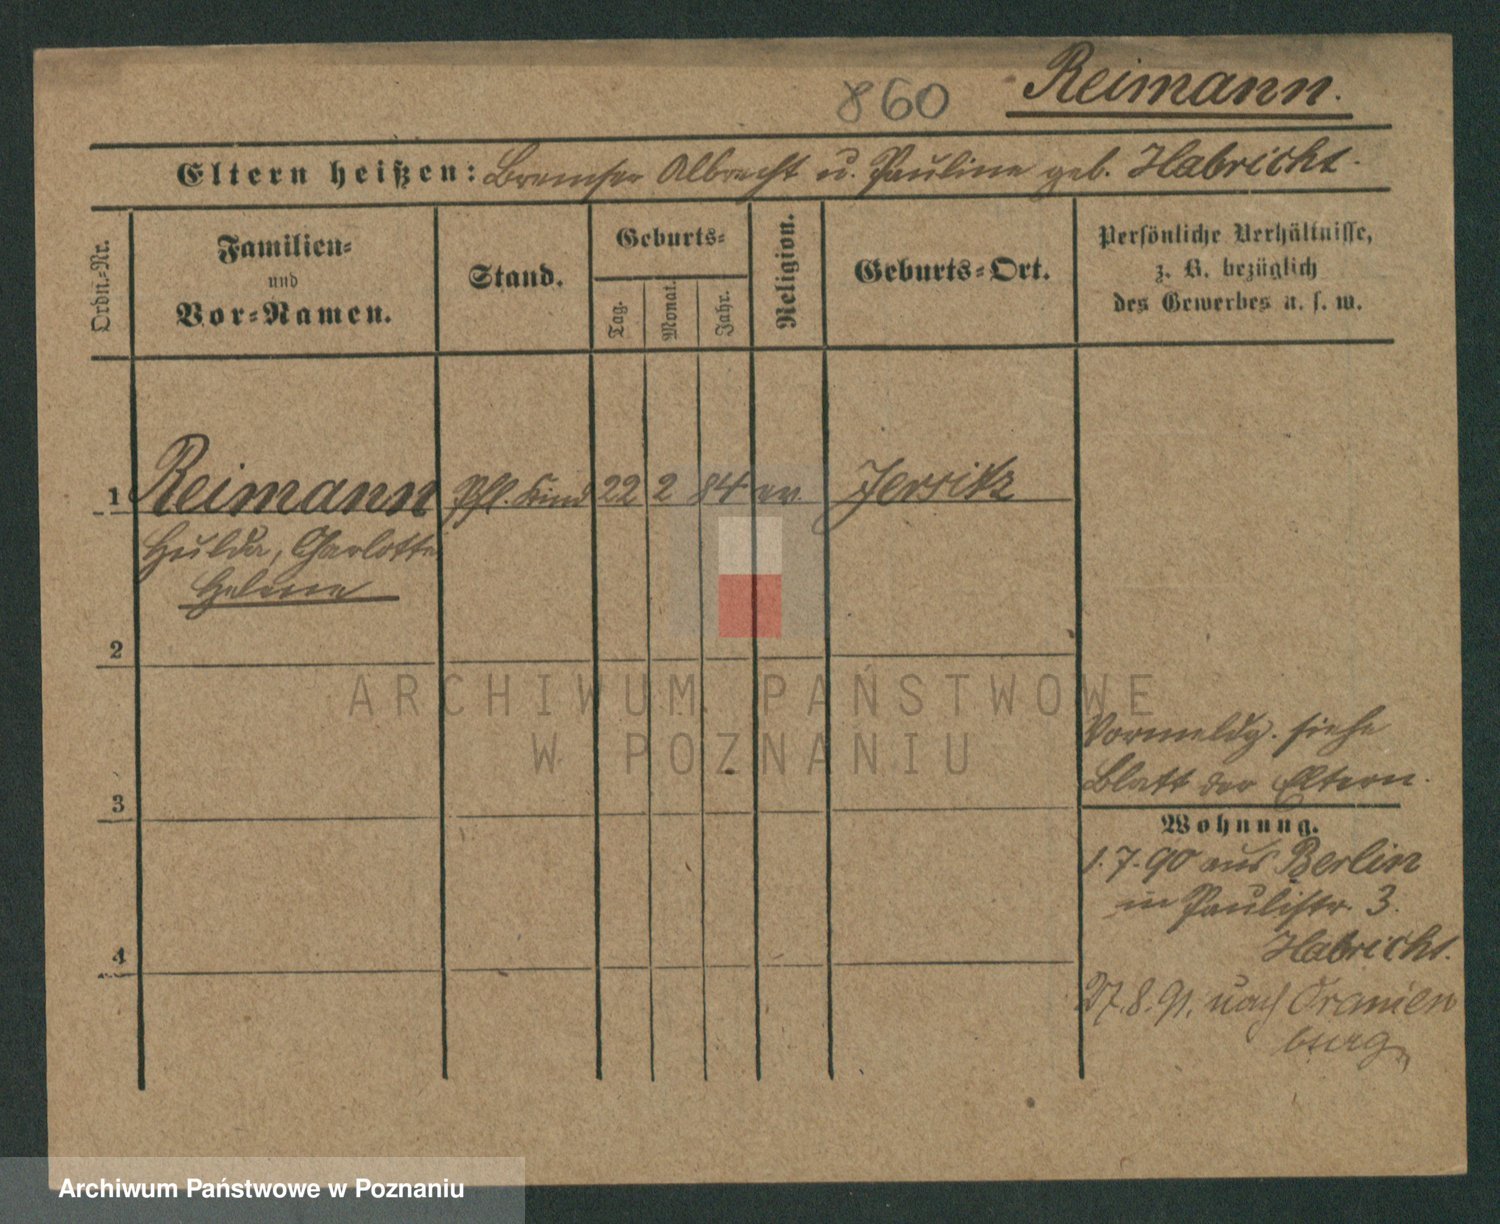 860
Reimann.
Eltern heißen: Bremser Albrecht u. Pauline geb. Habricht.
Ordn.-Nr.
Familien-
und
Vor-Namen.
Stand.
Geburts-
Tag.
Monat.
Jahr.
Religion.
Geburts-Ort.
Persönliche Verhältnisse,
z. B. bezüglich
des Gewerbes u. s. w.
1 Reimann Pfl. Kind 22 2 84 ev. Jersitz
Hulda, Charlotte
Helene
2
3
4
Vormeldg. siehe
Blatt der Eltern.
Wohnung.
1.7.90 aus Berlin
in Paulistr. 3.
Habricht.
27.8.91. nach Oranien
burg
ARCHIWUM PAŃSTWOWE
W POZNANIU
Archiwum Państwowe w Poznaniu